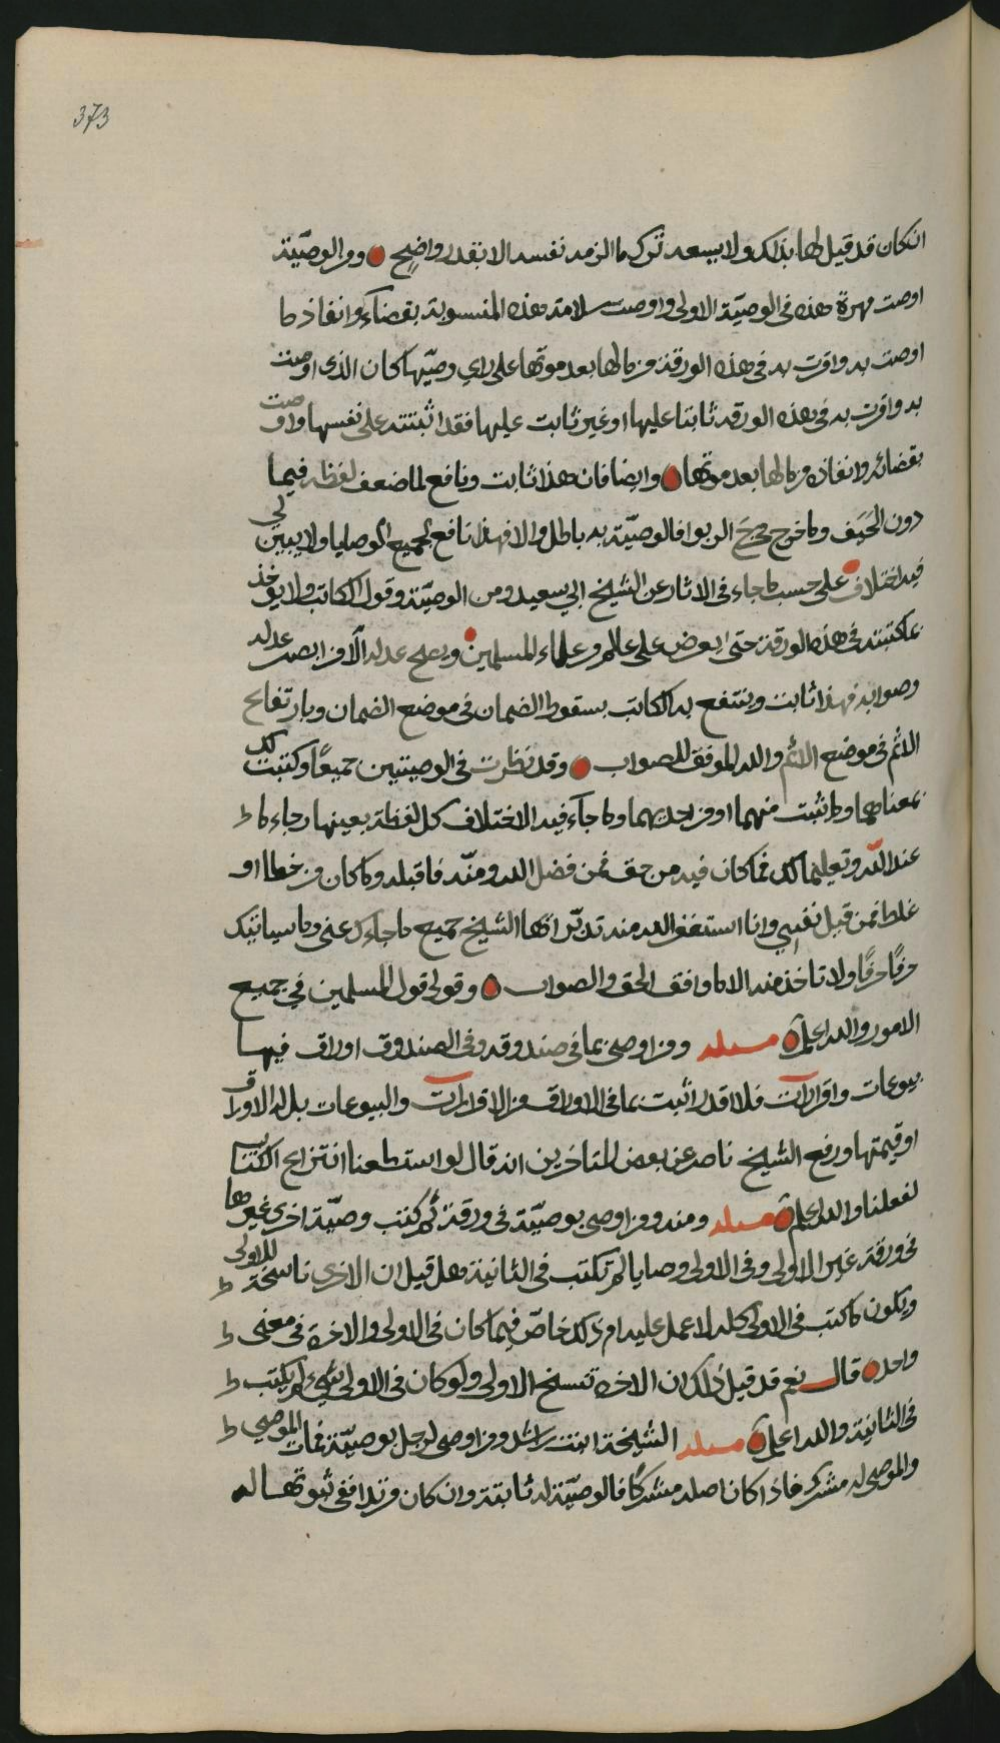 373
ان كان قد قيل لها بذلك ولا يسعه ترك ما الزمه نفسه الا بقدر واضح ومن الوصيّة
اوصت مهرة هذه في الوصيّة الاولى واوصت سلامة هذه المنسوبة بقضاء وانفاذ ما
اوصت به واقرت به في هذه الورقة من مالها بعد موتها على راي وصيّها كان الذي اوصت
به واقرت به في هذه الورقة ثابتا عليها او غير ثابت عليها فقد اثبتته على نفسها واوصت
بقضائه وانفاذه من مالها بعد موتها وايضا فان هذا ثابت ونافع لما ضعف لفظه فيما
دون الحيف وما خرج مخرج الربوا فالوصيّة به باطل والا فهذا نافع لجميع الوصايا ولا يبين لي
فيه اختلاف على حسب ما جاء في الاثار عن الشيخ ابي سعيد ومن الوصيّة وقول الكاتب ولا يوخذ
بما كتبته في هذه الورقة حتى يعرض على عالم من علماء المسلمين ويصح عدله الا من ابصر عدله
وصوابه فهذا ثابت وينتفع به الكاتب بسقوط الضمان في موضع الضمان وبارتفاع
الاثم في موضع الاثم والله الموفق للصواب وقد نظرت في الوصيتين جميعًا وكتبت لك
بمعناهما وما ثبت منهما او من احديهما وما جآء فيه الاختلاف كل لفظة بعينها رجاء ما
عند الله وتعليما لك فما كان فيه من حق فمن فضل الله ومنّه فاقبله وما كان من خطا او
غلط فمن قبل نفسي وانا استغفر الله منه تدبّر ايها الشيخ جميع ما جاءك عني وما سياتيك
حرفًا حرفًا ولا تاخذ منه الا ما وافق الحق والصواب وقولي قول المسلمين في جميع
الامور والله اعلم مسئلة ومن اوصى بما في صندوقه وفي الصندوق اوراق فيها
بيوعات واقرارات فلا اقدر اثبت بما في الاوراق من الاقرارات والبيوعات بل له الاوراق
او قيمتها ورفع الشيخ ناصر عن بعض المتاخرين انه قال لو استطعنا انتزاع الكتاب
لفعلنا والله اعلم مسئلة ومنه ومن اوصى بوصيّة في ورقة ثم كتب وصيّة اخرى غيرها
في ورقة غير الاولى وفي الاولى وصايا لم تكتب في الثانية وهل قيل ان الاخرى ناسخة للاولى
ويكون ما كتب في الاولى كله لا عمل عليه ام ذلك خاصّ فيما كان في الاولى والاخرة في معنى
واحد قال نعم قد قيل ذلك ان الاخرة تنسخ الاولى ولو كان في الاولى شيء لم يكتب
في الثانية والله اعلم مسئلة الشيخة ابنت راشد ومن اوصى لرجل بوصيّة فمات الموصي
والموصى له مشرك فاذا كان اصله مشركًا فالوصيّة له ثابتة وان كان مرتدا ففي ثبوتها له